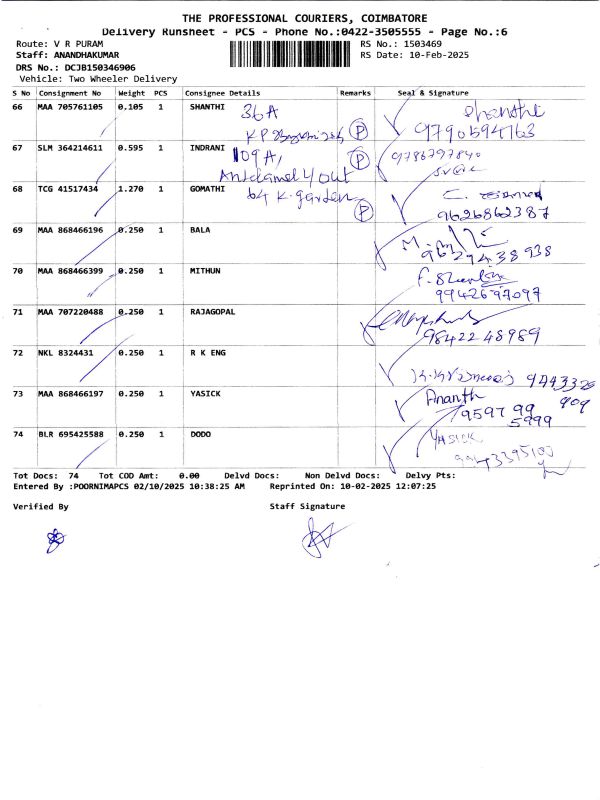 THE PROFESSIONAL COURIERS, COIMBATORE
Delivery Runsheet - PCS - Phone No.:0422-3505555 - Page No.:6
Route: V R PURAM RS No.: 1503469
Staff: ANANDHAKUMAR RS Date: 10-Feb-2025
DRS No.: DCJB150346906
Vehicle: Two Wheeler Delivery
S No Consignment No Weight PCS Consignee Details Remarks Seal & Signature
66 MAA 705761105 0.105 1 SHANTHI 36A
K P P 9790694763
67 SLM 364214611 0.595 1 INDRANI 109A, P 9786797840
68 TCG 41517434 1.270 1 GOMATHI 64 K. garden P
9626862387
69 MAA 868466196 0.250 1 BALA
9629438938
70 MAA 868466399 0.250 1 MITHUN
9942697097
71 MAA 707220488 0.250 1 RAJAGOPAL
9842248989
72 NKL 8324431 0.250 1 R K ENG
73 MAA 868466197 0.250 1 YASICK Ananth
9597 99
5999
74 BLR 695425588 0.250 1 DODO YASICK
Tot Docs: 74 Tot COD Amt: 0.00 Delvd Docs: Non Delvd Docs: Delvy Pts:
Entered By :POORNIMAPCS 02/10/2025 10:38:25 AM Reprinted On: 10-02-2025 12:07:25
Verified By Staff Signature